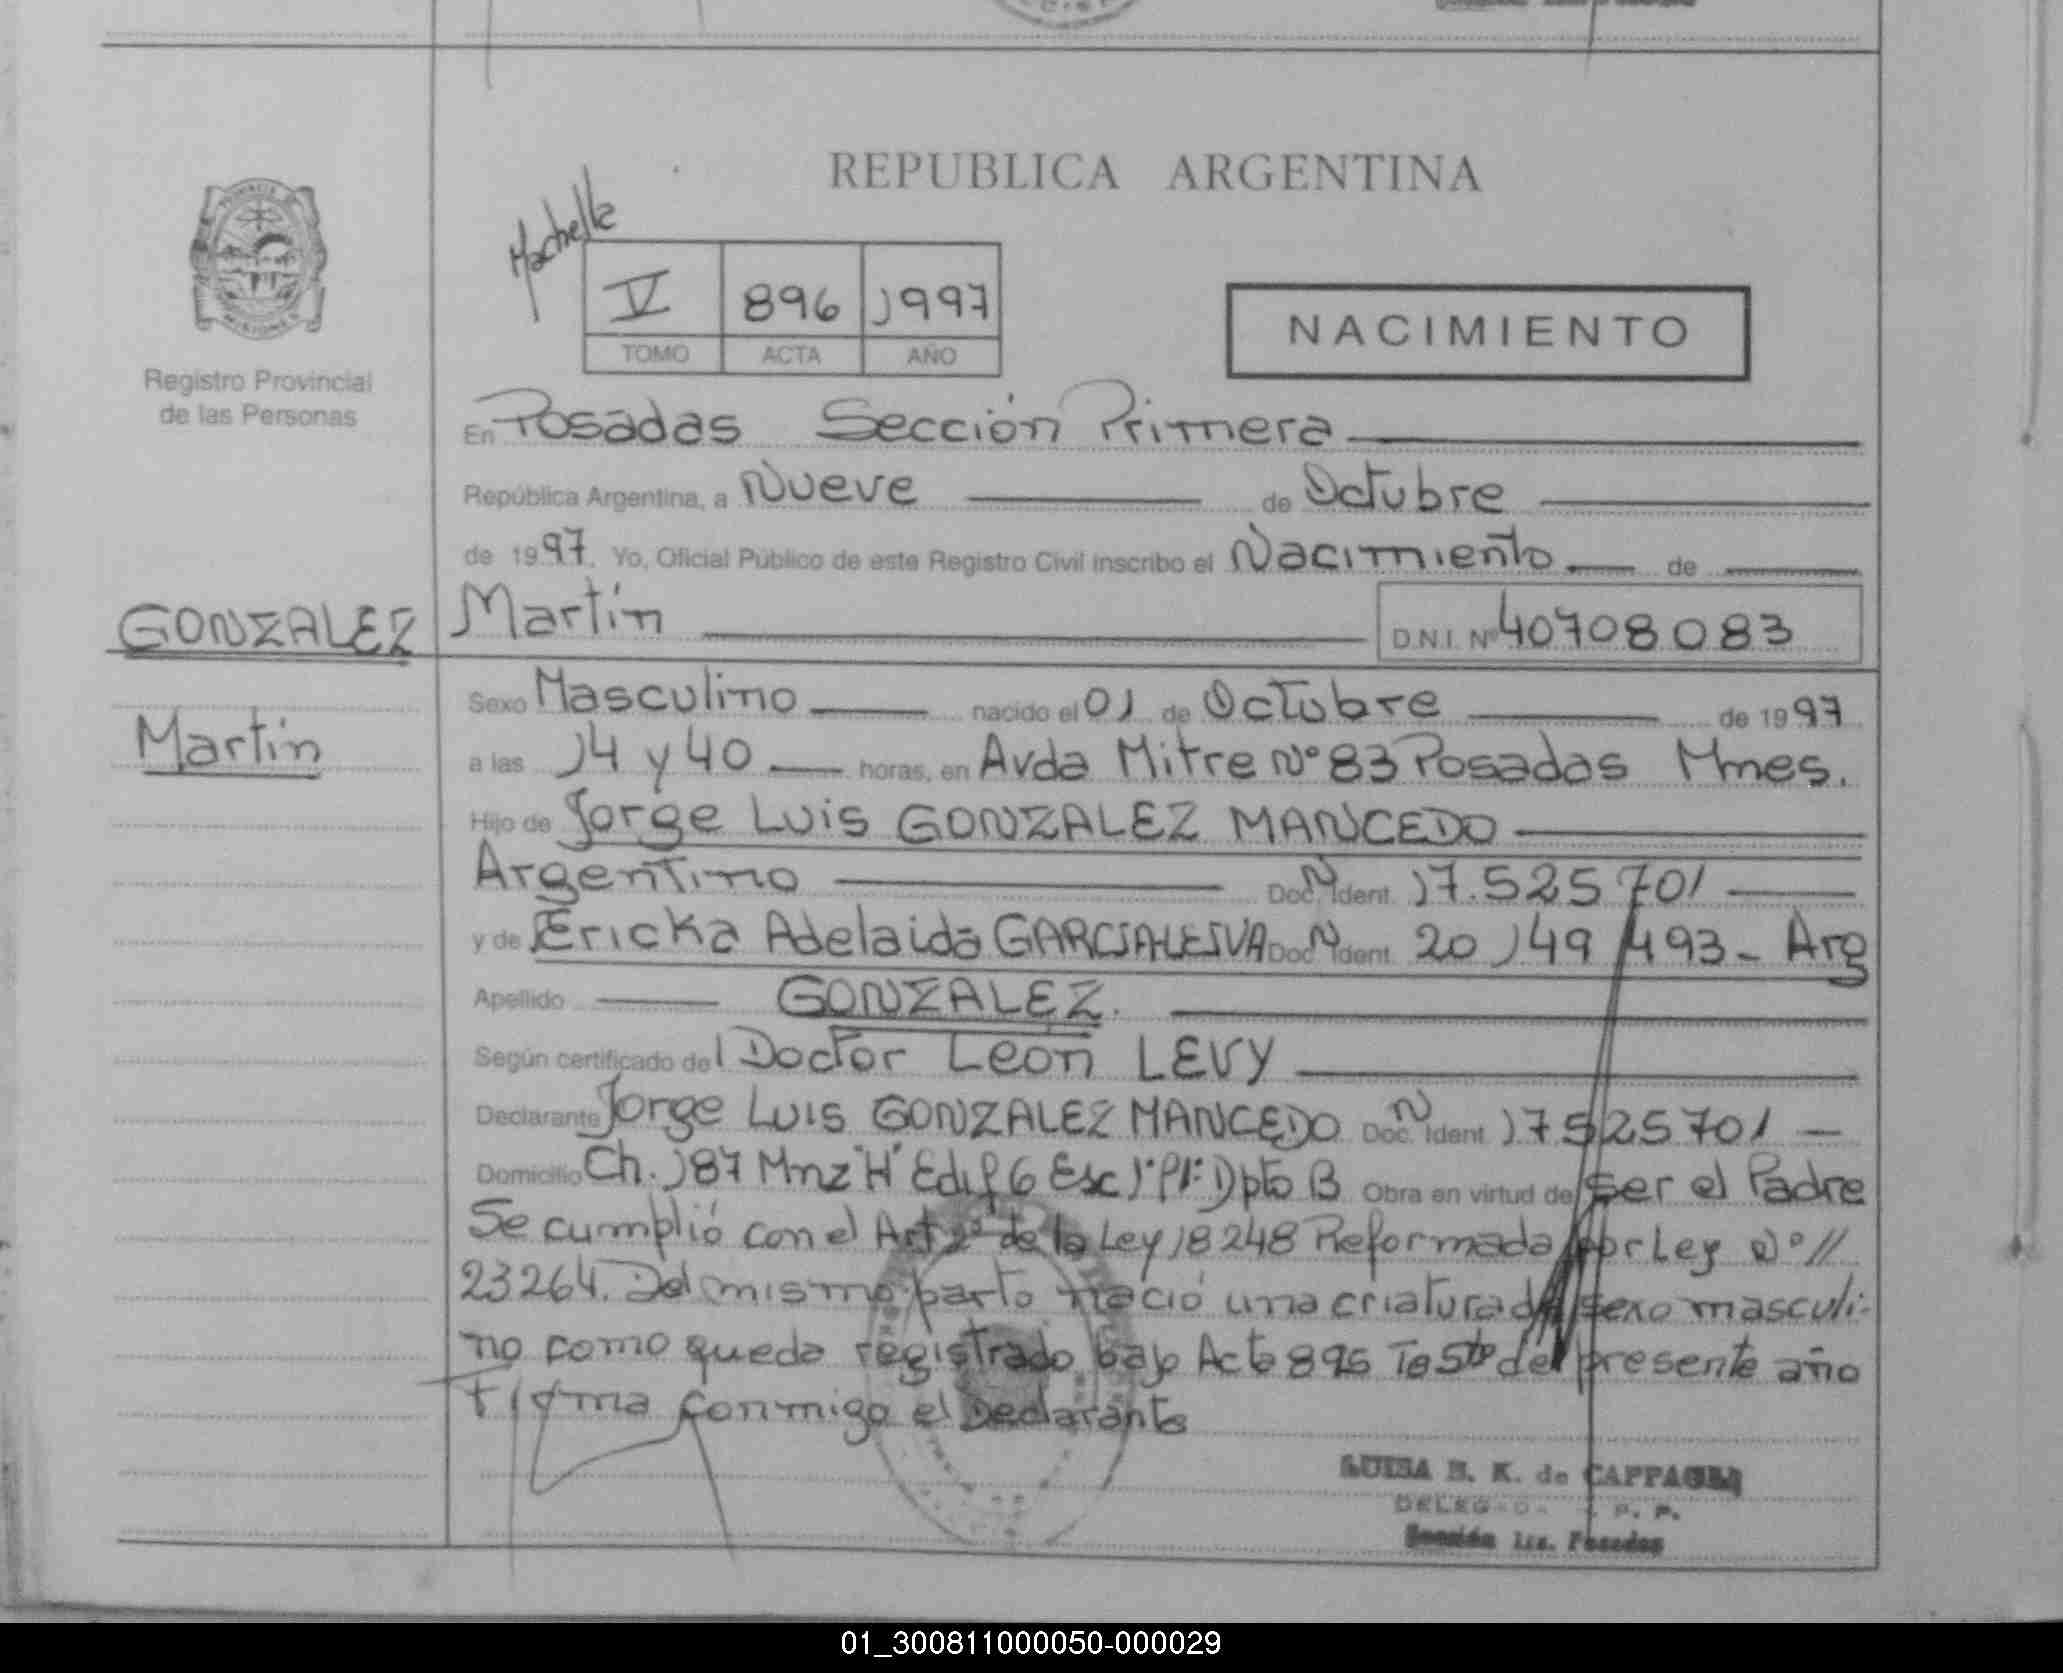 REPUBLICA ARGENTINA
PROVINCIA
MISIONES
Registro Provincial
de las Personas
V 896 1997
TOMO ACTA AÑO
NACIMIENTO
En Posadas Sección Primera
República Argentina, a Nueve de Octubre
de 1997. Yo, Oficial Público de este Registro Civil inscribo el Nacimiento de
GONZALEZ Martín D.N.I. Nº 40708083
Sexo Masculino nacido el 01 de Octubre de 1997
Martín
a las 14 y 40 horas, en Avda Mitre Nº 83 Posadas Mnes.
Hijo de Jorge Luis GONZALEZ MANCEDO
Argentino Doc. N Ident. 17.525 701
y de Ericka Adelaida GARCIA LEIVA Doc. N Ident. 20 149 493 - Arg
Apellido GONZALEZ.
Según certificado del Doctor León LEVY
Declarante Jorge Luis GONZALEZ MANCEDO Doc. N Ident 17525701 -
Domicilio Ch. 187 Mnz "H" Edif 6 Esc 1° P1° Dpto B Obra en virtud de ser el Padre
Se cumplió con el Art 2º de la Ley 18248 Reformada por Ley Nº //
23264. Del mismo parto nació una criatura de sexo masculi-
no como queda registrado bajo Acta 895 Tº 5to del presente año
Firma conmigo el Declarante
LUISA E. K. de
Sección 1ra. Posadas
01_300811000050-000029